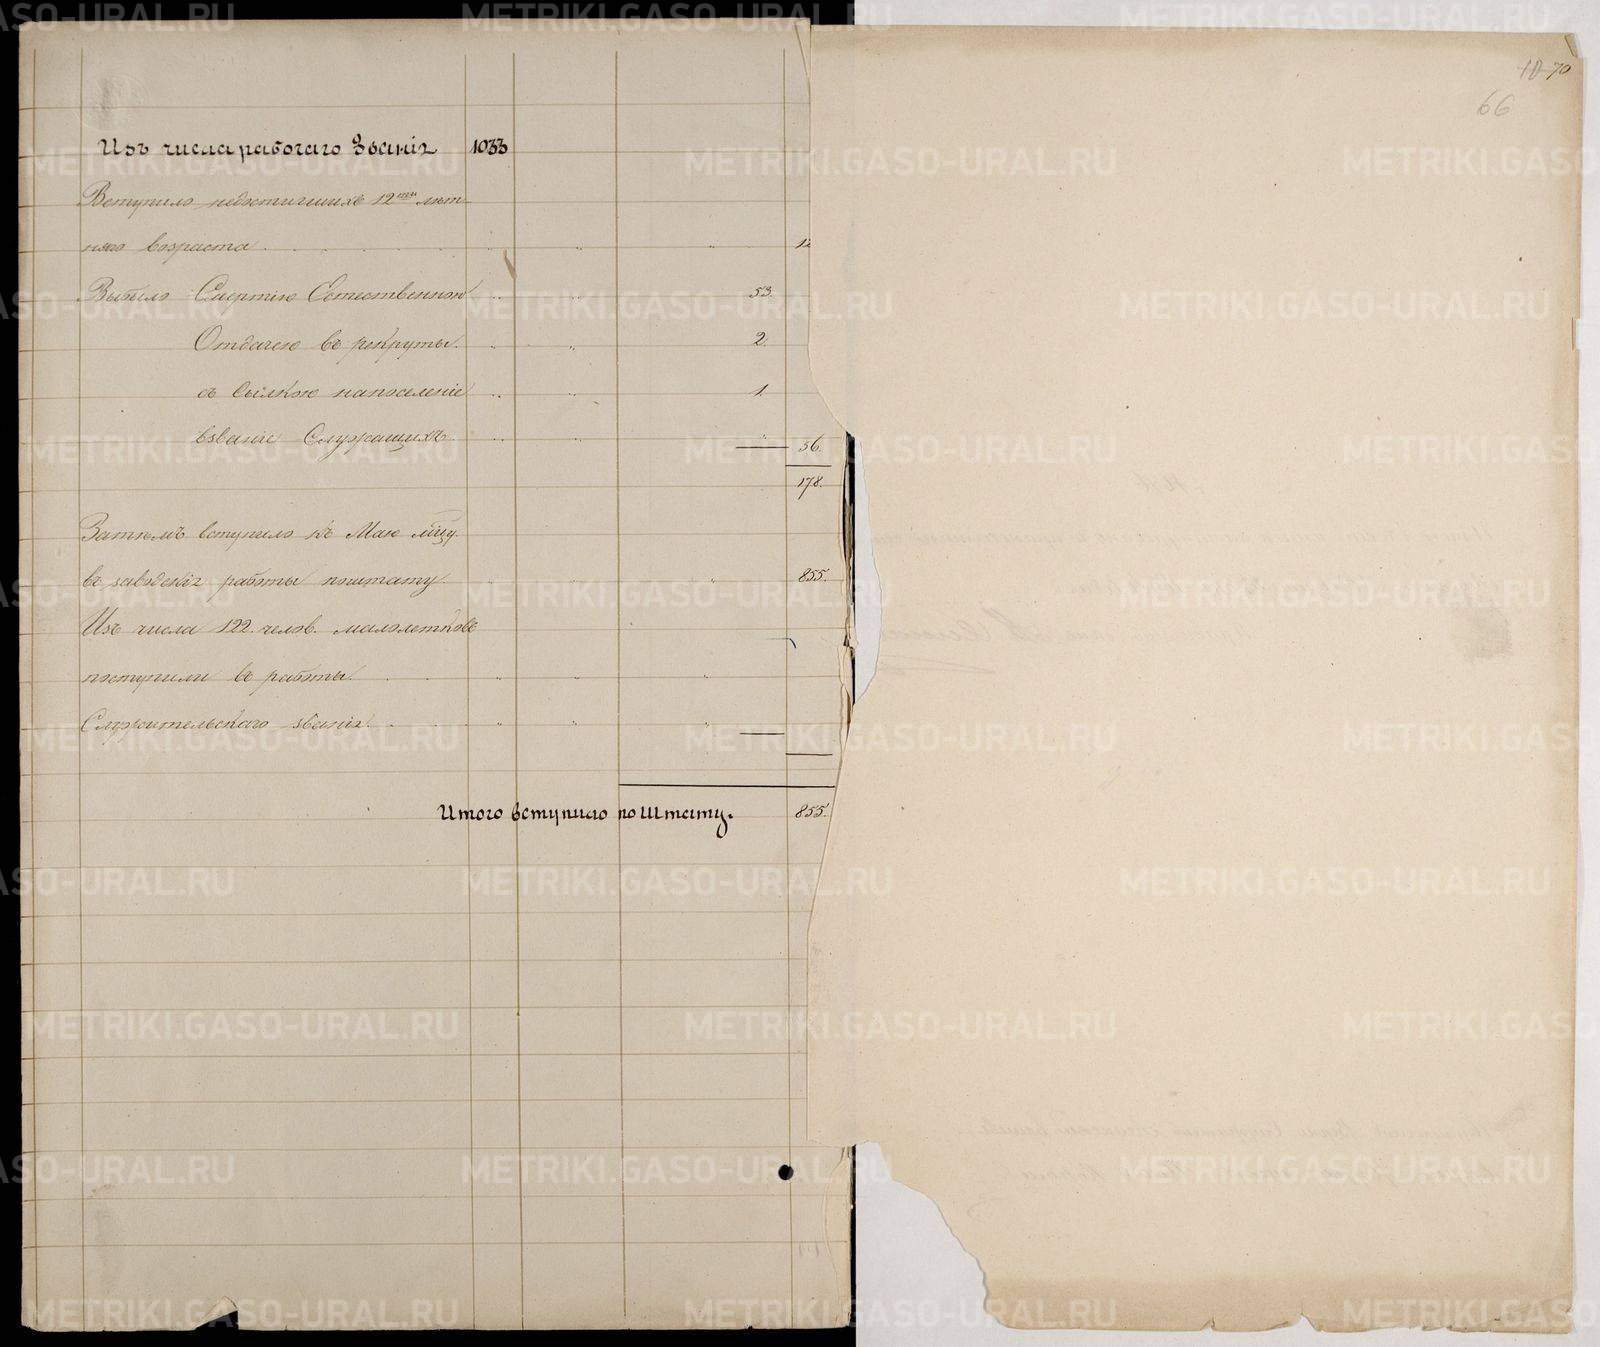 Изъ числа рабочаго Званія 1033
Вступило недостигшихъ 12ти лѣт
няго возраста . . . . . 12
Выбыло Смертію Естественною 53.
Отдачею въ рекруты. 2.
съ сылкою напоселеніе 1.
взваніе Служащихъ. 56.
178.
Затѣмъ вступило къ Маю мѣцу
въ заводскія работы поштату 855.
Изъ числа 122. челов. малолетковъ
поступили въ работы.
Служительскаго званія.
Итого вступило по Штату. 855.
10 70
66
METRIKI.GASO-URAL.RU